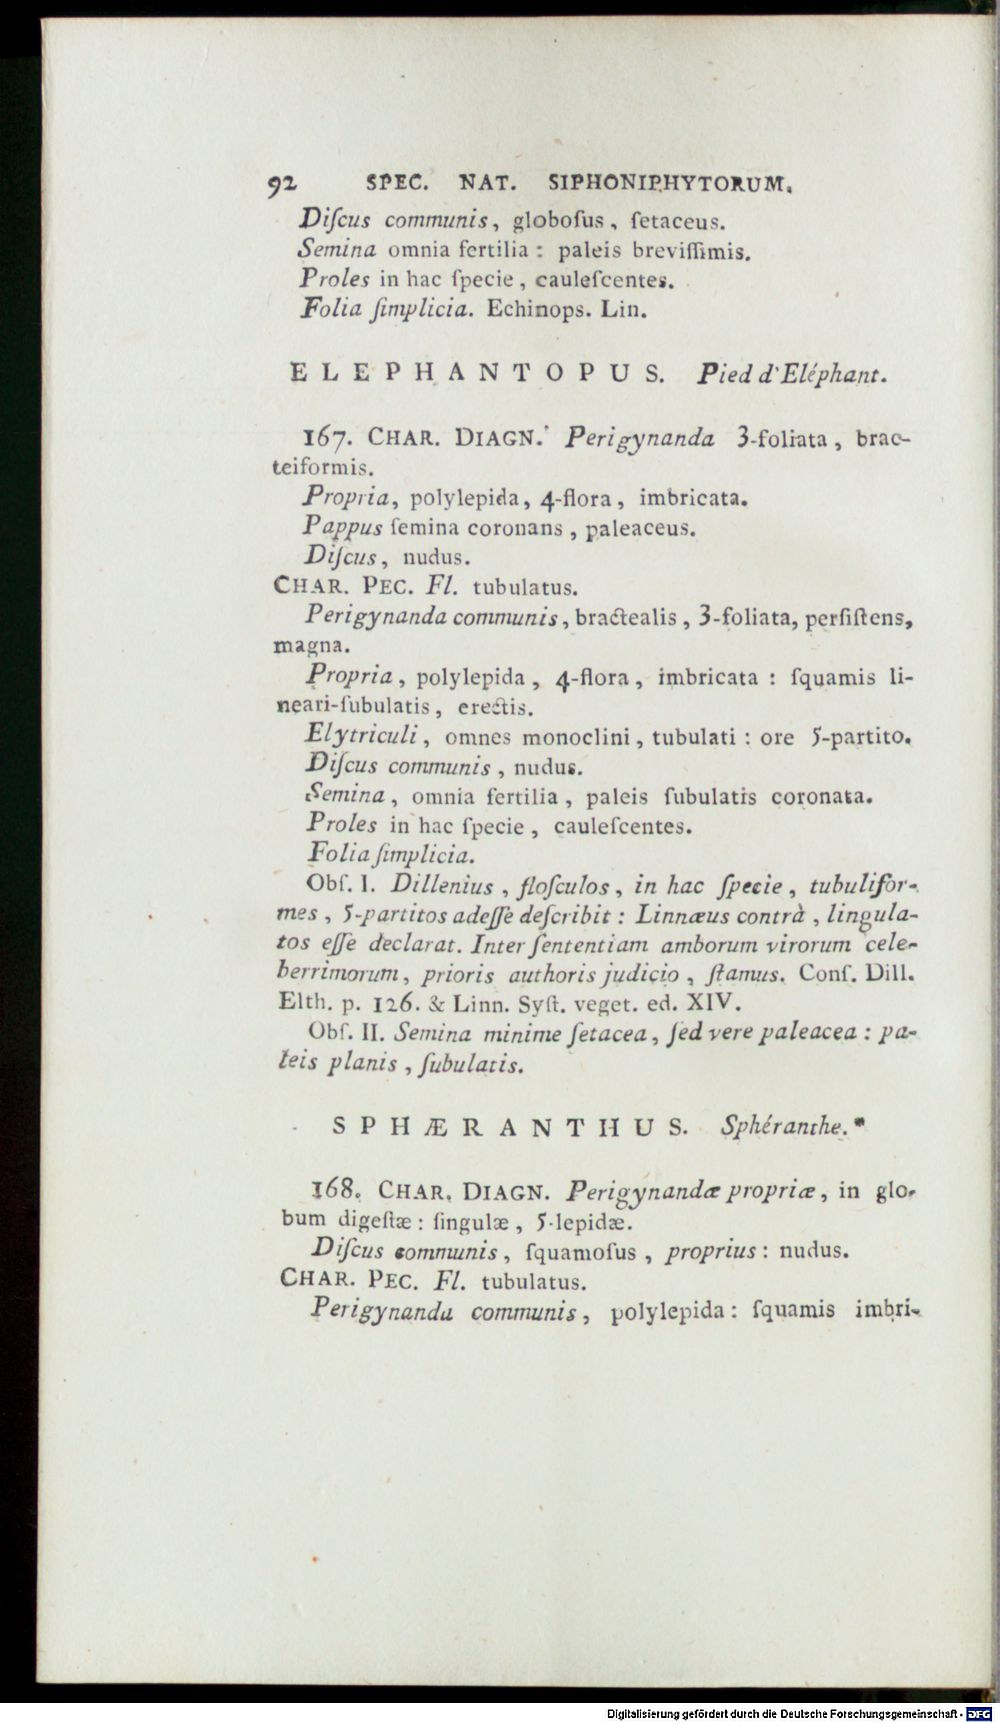 92 SPEC. NAT. SIPHONIPHYTORUM.
Diſcus communis, globoſus, ſetaceus.
Semina omnia fertilia : paleis breviſſimis.
Proles in hac ſpecie, cauleſcentes.
Folia ſimplicia. Echinops. Lin.
ELEPHANTOPUS. Pied d'Eléphant.
167. CHAR. DIAGN. Perigynanda 3-foliata, brac-
teiformis.
Propria, polylepida, 4-flora, imbricata.
Pappus ſemina coronans, paleaceus.
Diſcus, nudus.
CHAR. PEC. Fl. tubulatus.
Perigynanda communis, bractealis, 3-foliata, perſiſtens,
magna.
Propria, polylepida, 4-flora, imbricata : ſquamis li-
neari-ſubulatis, erectis.
Elytriculi, omnes monoclini, tubulati : ore 5-partito.
Diſcus communis, nudus.
Semina, omnia fertilia, paleis ſubulatis coronata.
Proles in hac ſpecie, cauleſcentes.
Folia ſimplicia.
Obſ. I. Dillenius, floſculos, in hac ſpecie, tubulifor-
mes, 5-partitos adeſſe deſcribit : Linnæus contrà, lingula-
tos eſſe declarat. Inter ſententiam amborum virorum cele-
berrimorum, prioris authoris judicio, ſtamus. Conf. Dill.
Elth. p. 126. & Linn. Syſt. veget. ed. XIV.
Obſ. II. Semina minime ſetacea, ſed vere paleacea : pa-
leis planis, ſubulatis.
SPHÆRANTHUS. Sphéranthe.*
168. CHAR. DIAGN. Perigynandæ propriæ, in glo-
bum digeſtæ : ſingulæ, 5-lepidæ.
Diſcus communis, ſquamoſus, proprius : nudus.
CHAR. PEC. Fl. tubulatus.
Perigynanda communis, polylepida : ſquamis imbri-
Digitalisierung gefördert durch die Deutsche Forschungsgemeinschaft - DFG